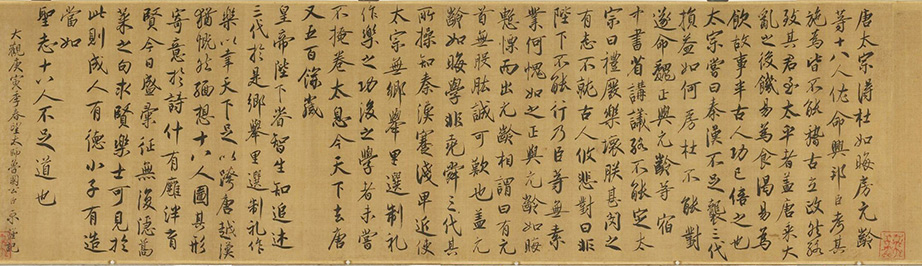 唐太宗得杜如晦房元齡
等十八人佐命興邦臣考其
施為皆不能稽古立政然能
致其君至太平者蓋唐承大
亂之後饑易為食渴易為
飲故事半古人功已倍之也
太宗嘗曰秦漢不足襲三代
損益如何房杜不能對
遂命魏正與元齡等宿
中書省講議終不能定太
宗曰禮廢樂壞朕甚閔之
有志不就古人攸悲對曰非
陛下不能行乃臣等無素
業何愧如之正與元齡如晦
慙慄而出元齡相謂曰有元
首無股肱誠可歎也蓋元
齡如晦學非堯舜三代其
所操如秦漢蹇淺卑近使
太宗無鄉舉里選制礼
作樂之功後之學者未嘗
不掩卷太息今天下去唐
又五百餘歲
皇帝陛下睿智生知追述
三代於是鄉舉里選制礼作
樂以幸天下足以跨唐越漢
猶慨然緬想十八人圖其形
寄意於詩什有廱泮育
賢今日盛彙征無復隱蒿
萊之句求賢樂士可見於
此則成人有德小子有造
當如
聖志十八人不足道也
大觀庚寅季春望太師魯國公臣京謹記